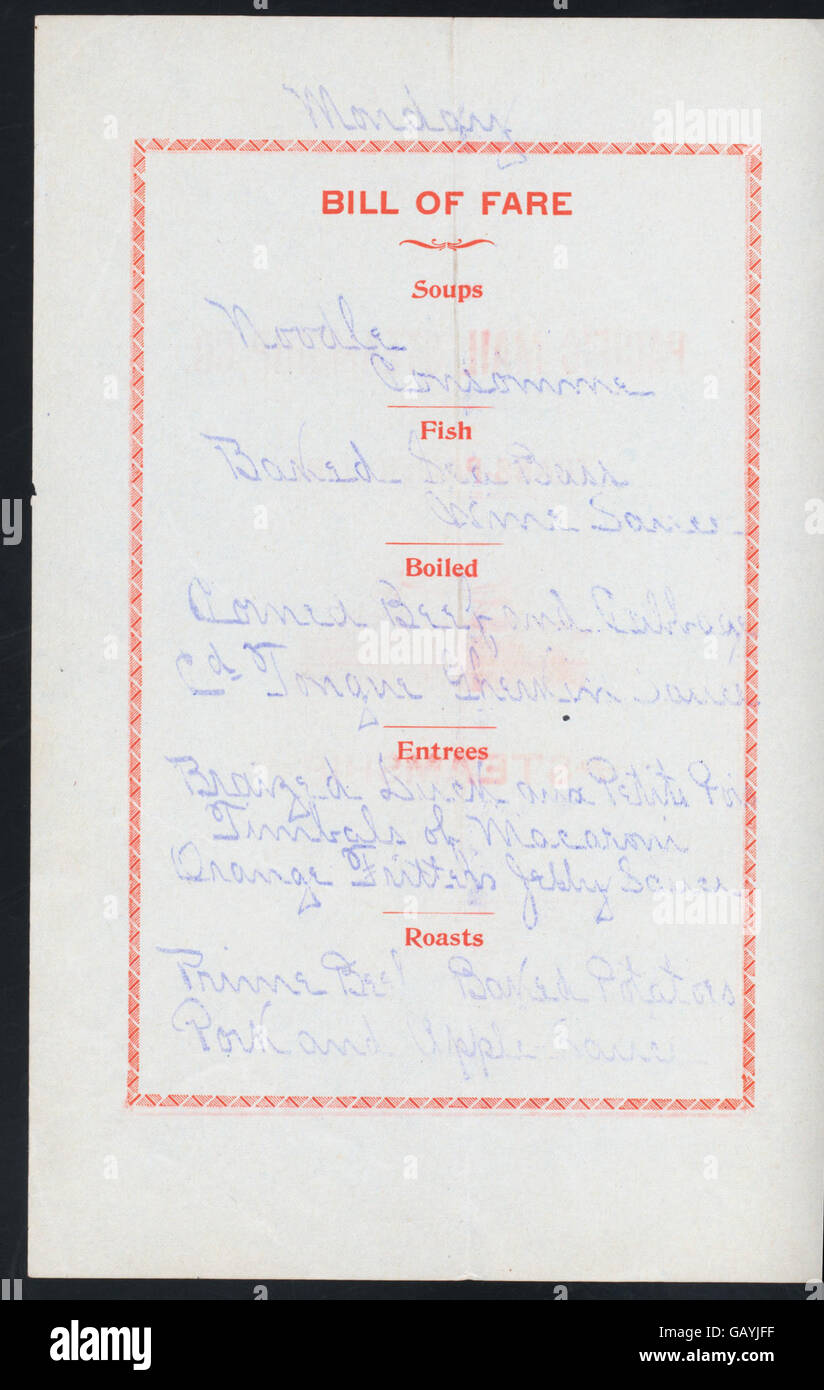 Monday
BILL OF FARE
Soups
Noodle
Consomme
Fish
Baked Sea Bass
Wine Sauce
Boiled
Corned Beef and Cabbage
Cd Tongue Gherkin Sauce
Entrees
Braized Duck aux Petits Pois
Timbals of Macaroni
Orange Fritters Jelly Sauce
Roasts
Prime Beef Baked Potatoes
Pork and Apple Sauce
alamy
alamy
alamy
alamy
Image ID: GAYJFF
www.alamy.com